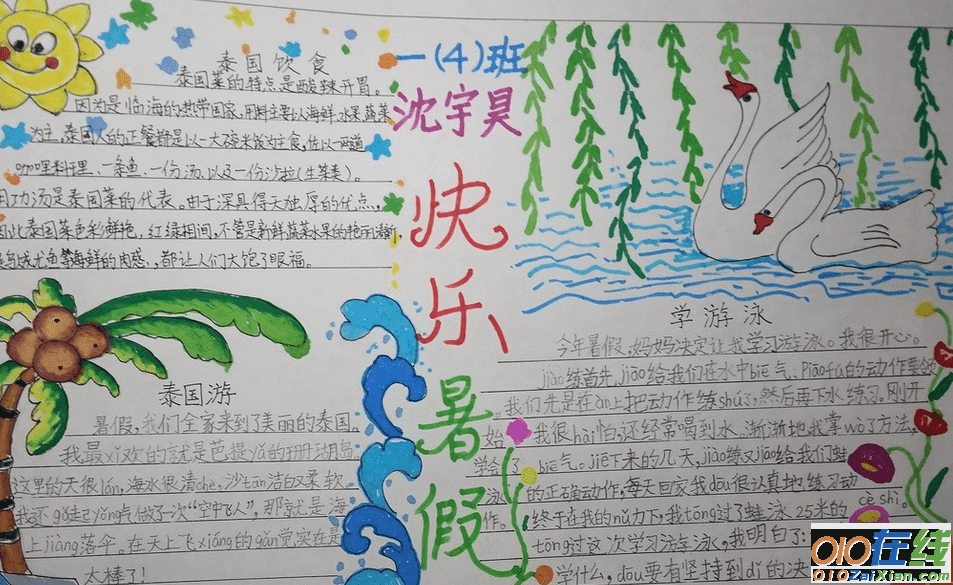 泰国饮食
泰国菜的特点是酸辣开胃。
因为是临海的热带国家,用料主要以海鲜、水果、蔬菜
为主。泰国人的正餐都是以一大碗米饭为主食,佐以一两道
咖哩料理、一条鱼、一份汤、以及一份沙拉(生菜类)。
功汤是泰国菜的代表。由于深具得天独厚的优点,
此泰国菜色彩鲜艳,红绿相间,不管是新鲜蔬菜水果的艳丽清新,
鱿鱼等海鲜的肉感,都让人们大饱了眼福。
一(4)班
沈宇昊
快乐暑假
泰国游
暑假,我们全家来到了美丽的泰国。
我最xǐ欢的就是芭提yǎ的珊瑚岛
这里的天很lán,海水很清chè,沙tān洁白又柔软。
我还gǔ起yǒng气做了一次“空中飞人”,那就是海
上jiàng落伞。在天上飞xiáng的gǎn觉实在是
太棒了!
学游泳
今年暑假,妈妈决定让我学习游泳。我很开心。
jiāo练首先jiāo给我们在水中biē气、piāo fú的动作要领
。我们先是在àn上把动作练shú了,然后再下水练习。刚开
始,我很hài怕,还经常喝到水、渐渐地我掌wò了方法,
学会了biē气。jiē下来的几天,jiào练又jiāo给我们蛙
泳的正确动作,每天回家我dōu很认真地练习动
作。终于在我的nǔ力下,我tōng过了蛙泳25米的cè shì。
tōng过这次学习游泳,我明白了:
学什么,dōu要有坚持到dǐ的决
010在线
010ZaiXian.com